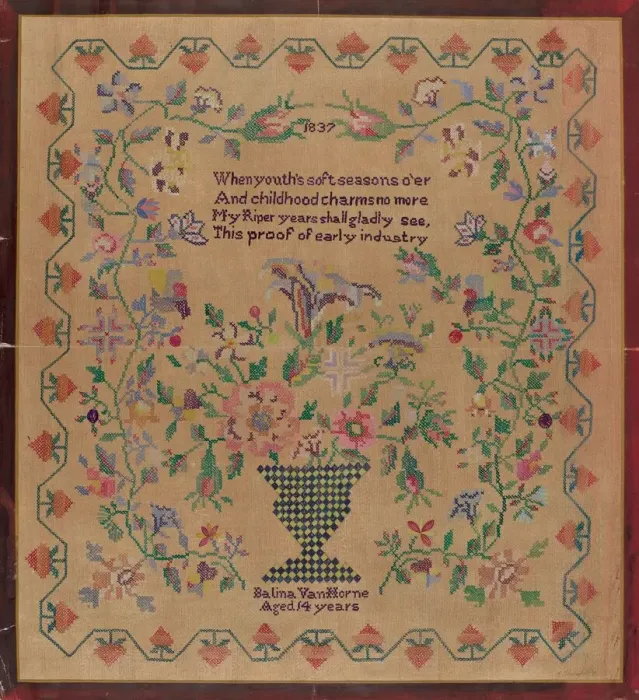 1837
When youth's soft seasons o'er
And childhood charms no more
My Riper years shall gladly see,
This proof of early industry
Salina VanHorne
Aged 14 years